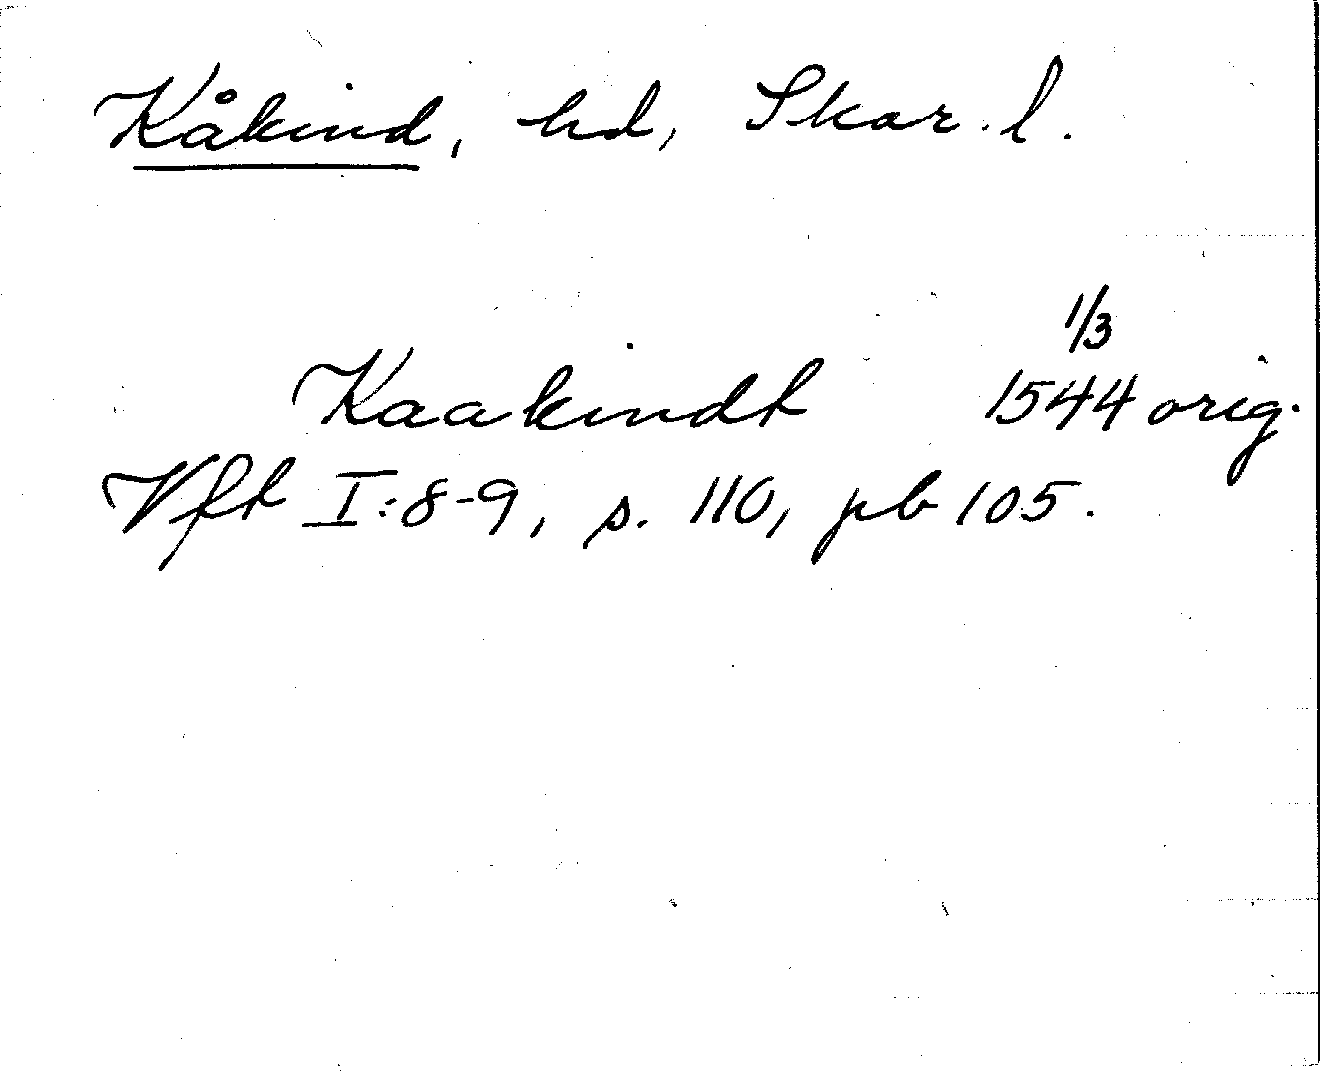 Kåkind, hd, Skar. l.
1/3
Kaakindt 1544 orig.
Vft I:8-9, s. 110, pb 105.